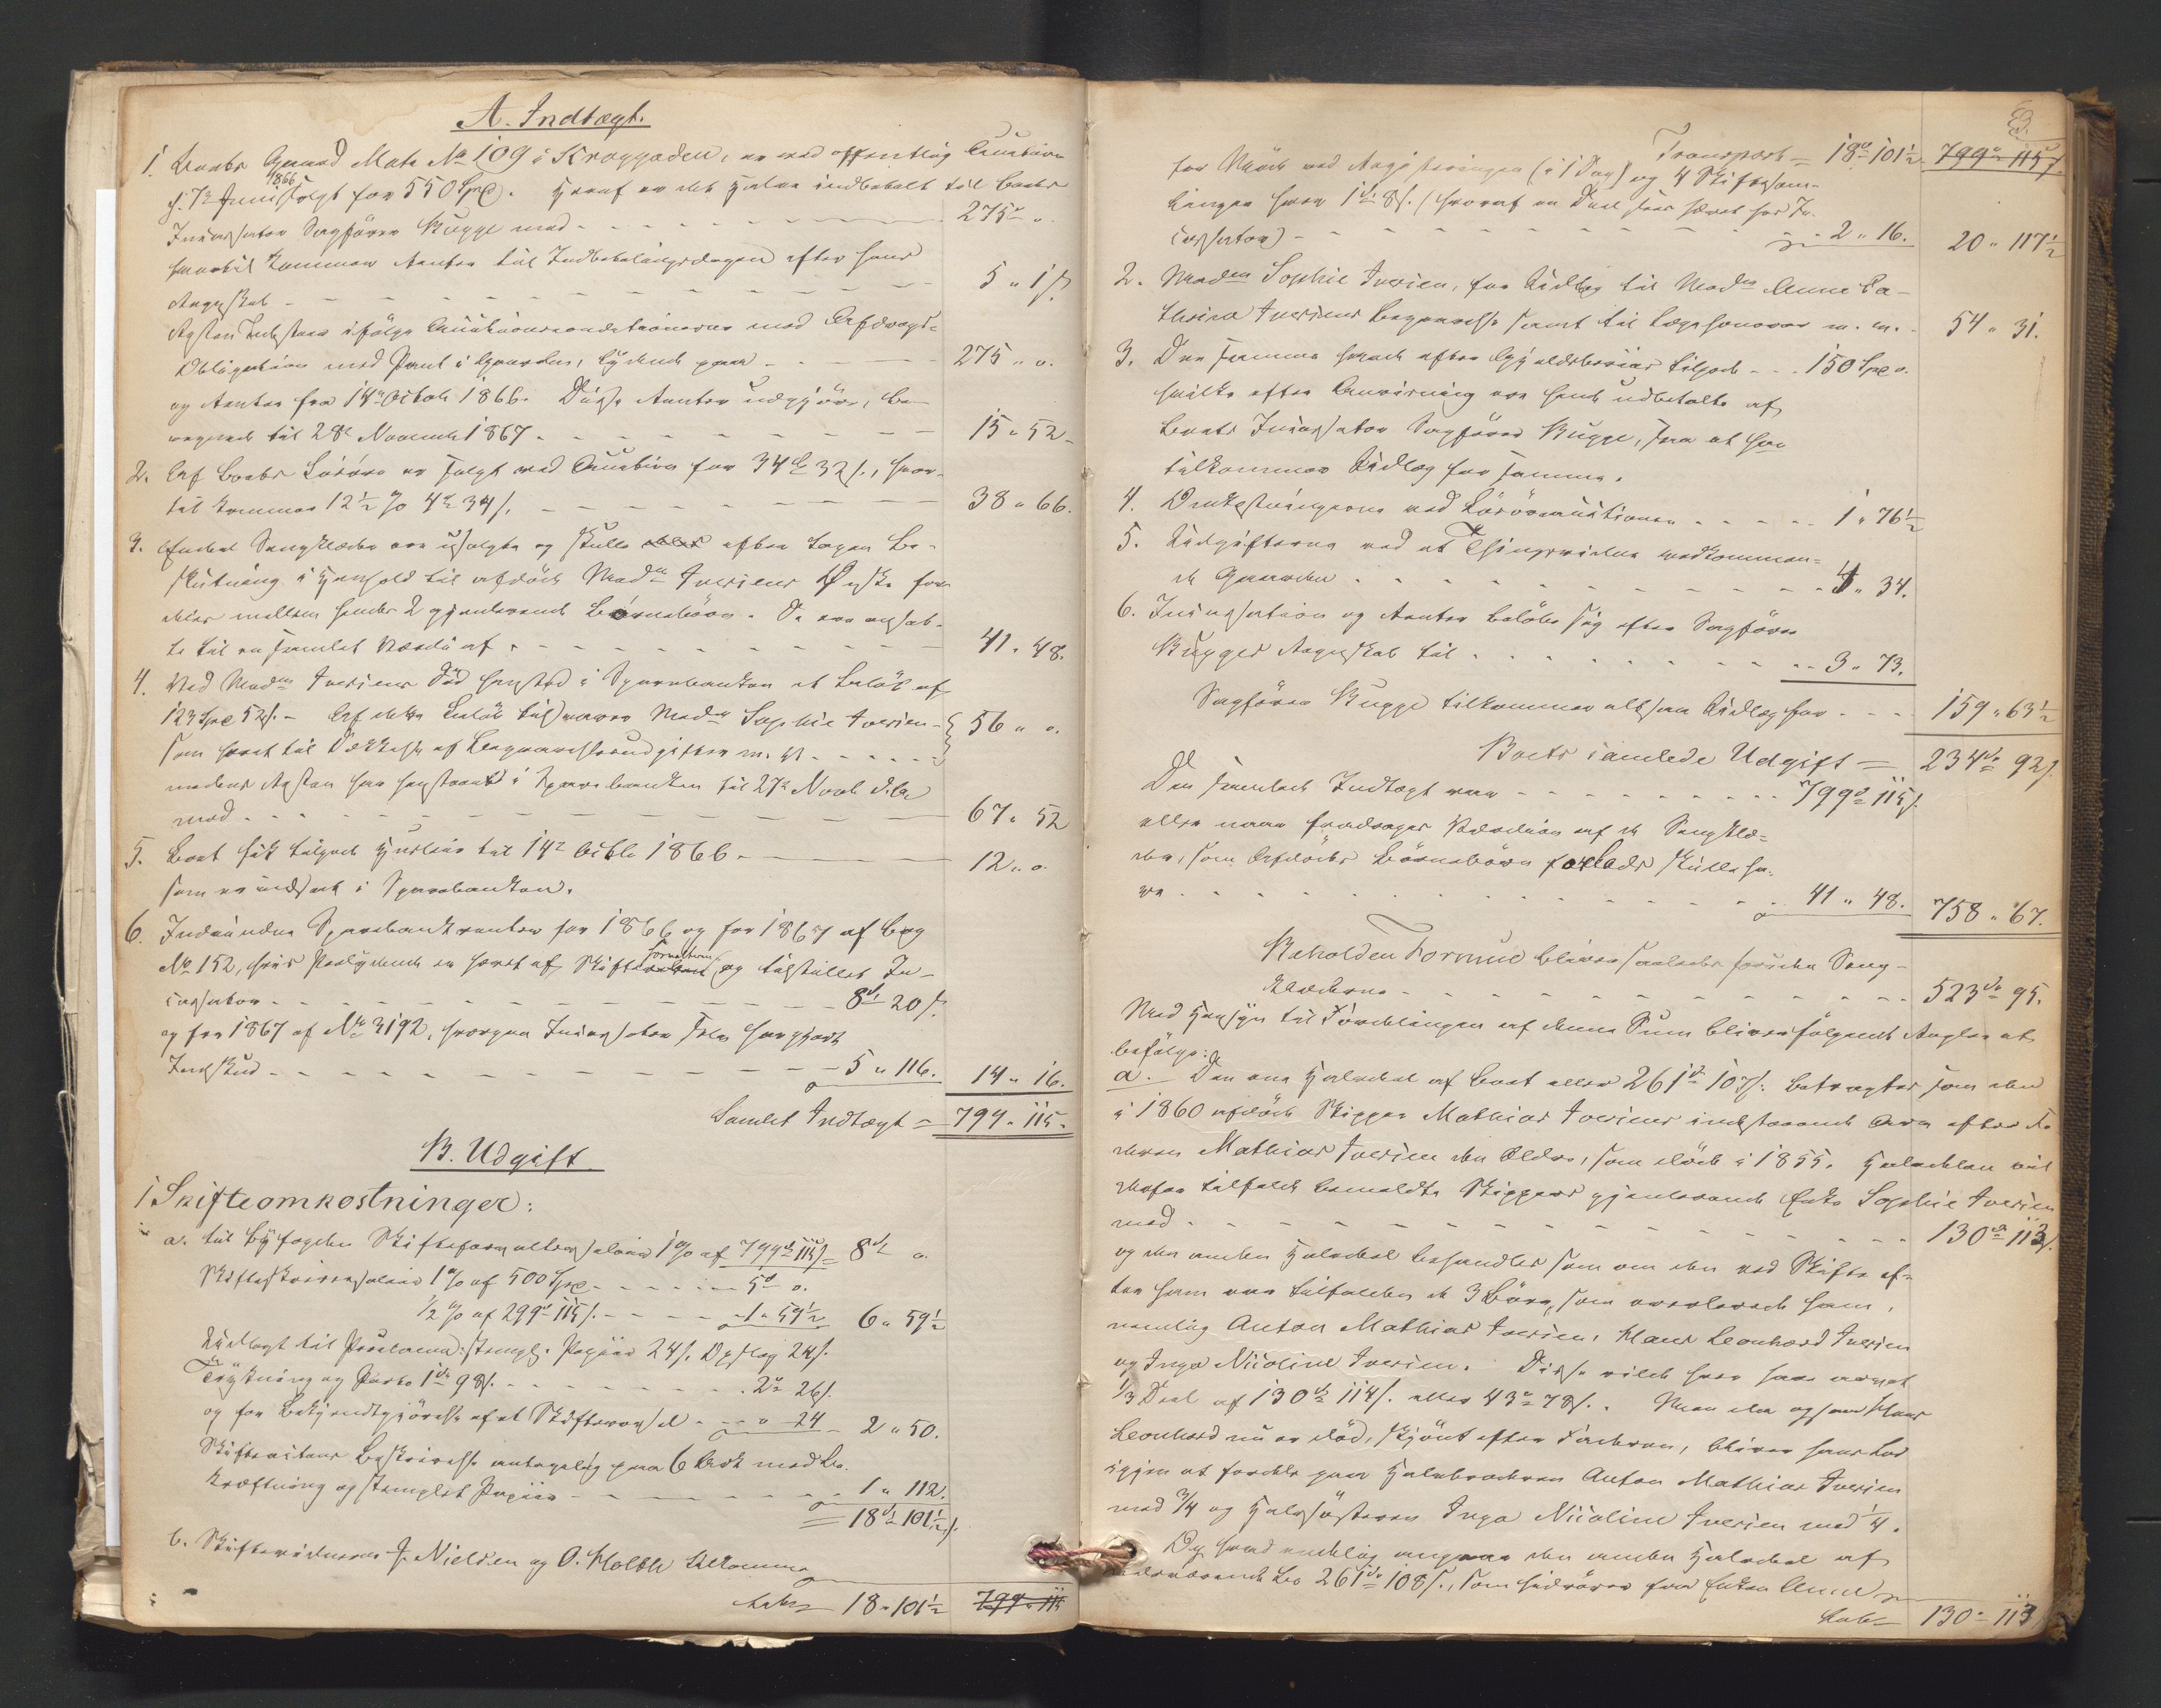 A. Indtægt.
1. Boets Gaard Matr No 109 i Kroggaden, er ved offentlig Auction
d. 7de Juni 1866 solgt for 550 Spd. Heraf er det halve indbetalt til Boets
Incassator Sagfører Bugge med - - - 275 " o.
hvortil kommer Renter til Indbetalingsdagen efter hans
Regnskab - - - 5 " 1 s.
Resten Indestaar ifølge Auctionsconditionerne med Afdrags-
Obligation med Pant i Gaarden, lydende paa - - - 275 " o.
og Renter fra 14de Octob 1866. Disse Renter udgjør, be-
regnede til 28de Novemb 1867. - - - 15 " 52.
2. Af Boets Løsøre er solgt ved Auction for 34 d 32 s., hvor-
til kommer 12½ % 4 d 34 s. - - - 38 " 66.
3. Endel Sengklæder ere usolgte og skulle efter Logen Be-
slutning i Henhold til afdøde Madm Iversens Ønske for-
deles mellem hendes 2 gjenlevende Børnebørn. De ere ansat-
te til en samlet Værdi af - - - 41 " 48.
4. Ved Madm Iversens Død henstod i Sparebanken et Beløb af
123 Spd 52 s. - Af dette Beløb tilsvarer Madm Sophie Iversen -
som hævet til Dækkelse af Begravelsesudgifter m. v. - - - 56 " o.
medens Resten har henstaaet i Sparebanken til 27de Novb d. A.
med - - - 67 " 52
5. Boet fik tilgode Husleie til 14de Octbr 1866 - - - 12 " o.
som er indsat i Sparebanken.
6. Indvundne Sparebankrenter for 1866 og for 1867 af Bog
No 152, hvis Paalydende er hævet af Skifteforvalteren og tilstillet In-
cassator - - - 8 d 20 s.
og for 1867 af No 3192, hvorpaa Incassator selv har gjort
Indskud - - - 5 " 116. 14 " 16.
Samlet Indtægt = 799 " 115.
B. Udgift
1 Skifteomkostninger:
a. til Byfogden Skifteforvaltersalair 1 % af 799 d 115 s = 8 d " o.
Skifteskriversalair 1 % af 500 Spd - - - 5 d o.
½ % af 299 d 115 s. - - - 1 " 59½ 6 " 59½
Udlagt til Proclama: stempl. Papir 24 s. Opslag 24 s.
Trykning og Porto 1 d 98 s. - - - 2 d 26 s.
og for Bekjendtgjørelse af et Skiftevarsel - - - " 24 - 2 " 50.
Skifteactens Beskrivelse antagelig paa 6 Ark med Be-
kræftning og stemplet Papir - - - 1 " 112.
= 18 d 101½ s.
b. Skiftevidnerne J. Nielsen og O. Holbæk tilkomme
Lateris 18 " 101½ 799 " 115
3.
Transport = 18 d 101½ 799 d 115 s
for Møde ved Registreringen (i 1 Dag) og 4 Skiftesam-
linger hver 1 d 8 s. (hvoraf en Deel staar hævet hos In-
cassator) - - - 2 " 16. 20 " 117½
2. Madm Sophie Iversen, for Udlæg til Madm Anne Ca-
thrina Iversens Begravelse samt til Lægehonorar m. m. - 54 " 31.
3. Den samme havde efter Gjældsbeviis tilgode - - - 150 Spd o.
hvilke efter Anvisning ere hende udbetalte af
Boets Incassator Sagfører Bugge, saa at han
tilkommer Udlæg for samme.
4. Omkostningerne ved Løsøreauctionen - - - 1 " 76½
5. Udgifterne ved at Thingsvidne vedkommen-
de Gaarden - - - 4 " 34.
6. Incassation og Renter beløbe sig efter Sagfører
Bugges Regnskab til - - - 3 " 73.
Sagfører Bugge tilkommer altsaa Udlæg for - - - 159 " 63½
Boets samlede Udgift = 234 d 92 s.
Den samlede Indtægt var - - - 799 d 115 s.
eller naar fradrages Værdien af de Sengklæ-
der, som Afdødes Børnebørn forlods skulle ha-
ve - - - 41 " 48. 758 " 67.
Beholden Formue bliver saaledes foruden Seng-
klæderne - - - 523 d 95.
Med Hensyn til Fordelingen af denne Sum bliver følgende Regler at
befølge:
a. Den ene Halvdel af Boet eller 261 d 107 s. betragtes som den
i 1860 afdøde Skipper Mathias Iversens indestaaende Arv efter Fa-
deren Mathias Iversen den Ældre, som døde i 1855. Halvdelen vil
derfor tilfalde bemeldte Skippers gjenlevende Enke Sophie Iversen
med - - - 130 d 113 s.
og den anden Halvdel behandles som om den ved Skifte ef-
ter ham var tilfalden de 3 Børn, som overlevede ham,
nemlig Anton Mathias Iversen, Hans Leonhard Iversen
og Inga Nicoline Iversen. Disse vilde hver have arvet
1/3 Deel af 130 d 114 s. eller 43 d 78 s. Men da ogsaa Hans
Leonhard nu er død, skjønt efter Faderen, bliver hans Lod
igjen at fordele paa Halvbroderen Anton Mathias Iversen
med 3/4 og Halvsøsteren Inga Nicoline Iversen med 1/4.
Og hvad endelig angaar den anden Halvdel af
nærværende Bo 261 d 108 s., som hidrører fra Enken Anne
Lateris 130 " 113